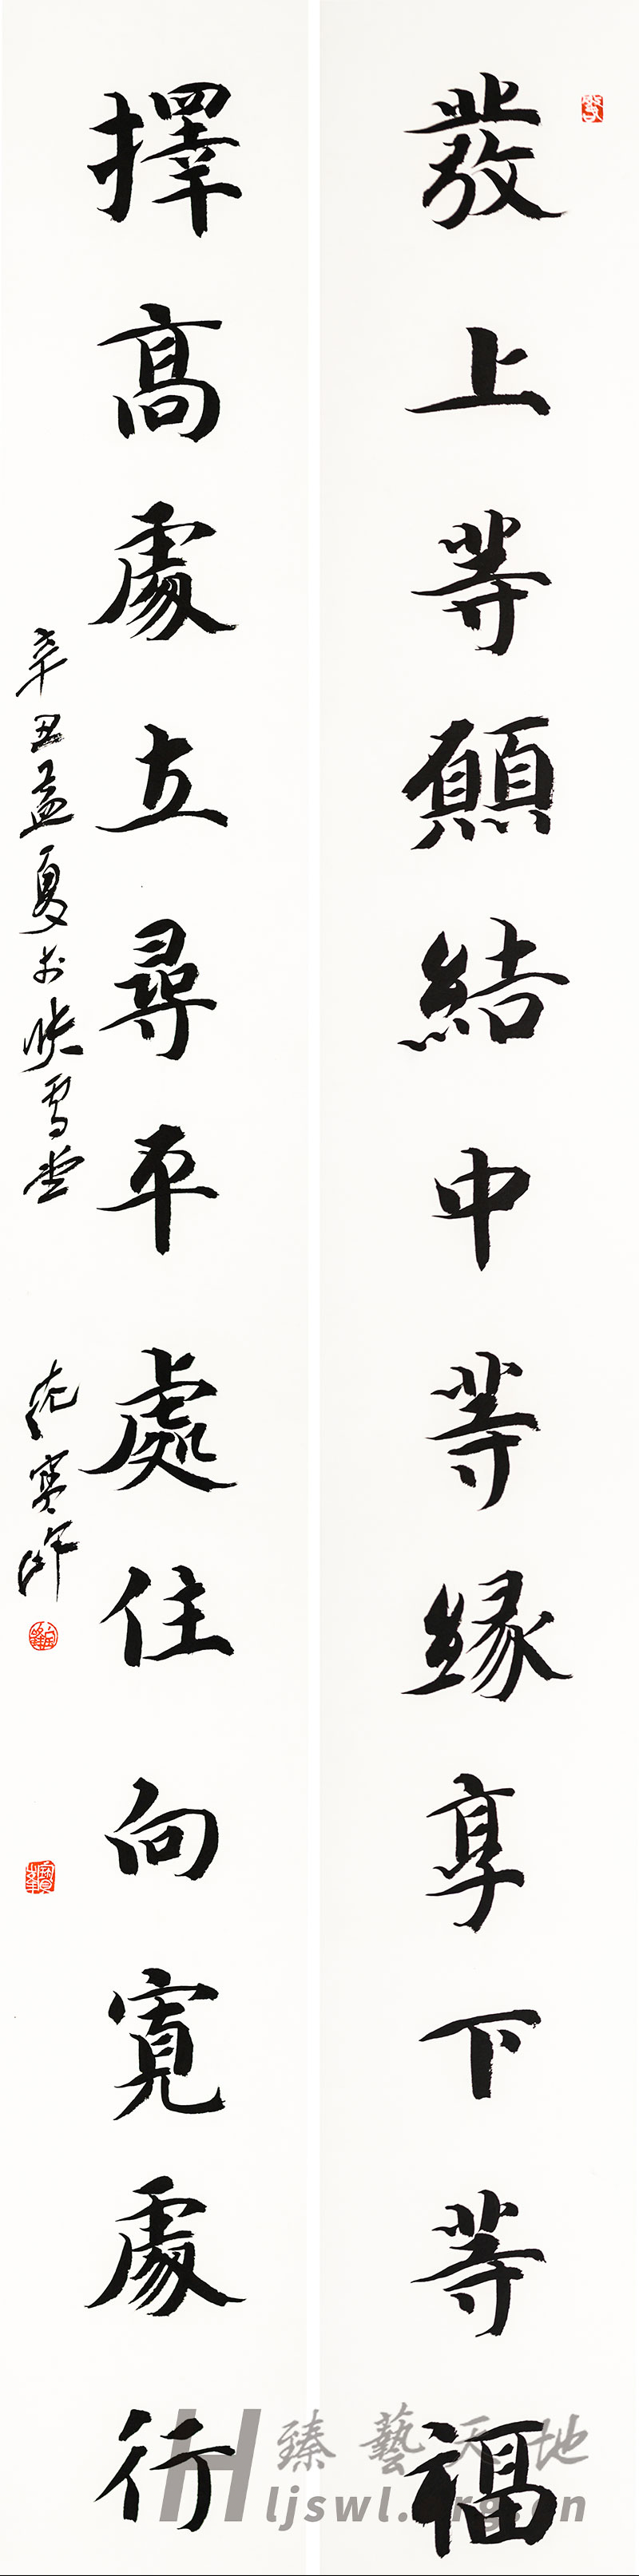 發上等願結中等緣享下等福
擇高處立尋平處住向寬處行
辛丑孟夏於映雪堂
臻藝天地
ljswl.org.cn